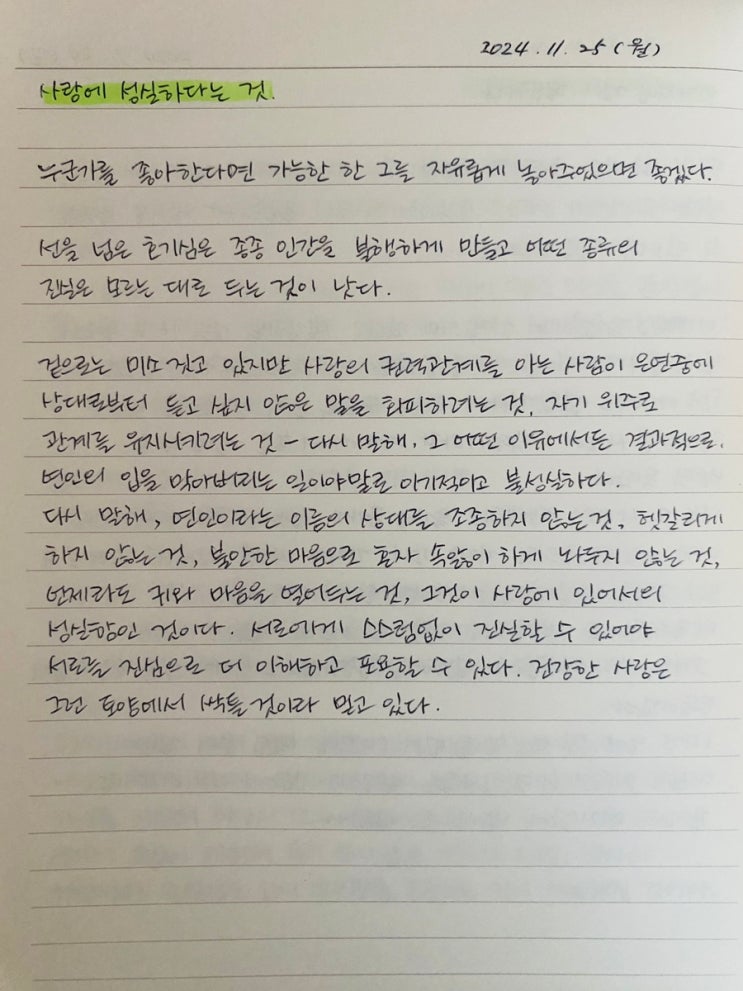 2024. 11. 25 (월)
사랑에 성실하다는 것.
누군가를 좋아한다면 가능한 한 그를 자유롭게 놓아주었으면 좋겠다.
선을 넘은 호기심은 종종 인간을 불행하게 만들고 어떤 종류의
진실은 모르는 대로 두는 것이 낫다.
겉으로는 미소 짓고 있지만 사랑의 권력관계를 아는 사람이 은연중에
상대로부터 듣고 싶지 않은 말을 회피하려는 것, 자기 위주로
관계를 유지시키려는 것 - 다시 말해, 그 어떤 이유에서든 결과적으로.
연인의 입을 막아버리는 일이야말로 이기적이고 불성실하다.
다시 말해, 연인이라는 이름의 상대를 조종하지 않는 것, 헷갈리게
하지 않는 것, 불안한 마음으로 혼자 속앓이 하게 놔두지 않는 것,
언제라도 귀와 마음을 열어두는 것, 그것이 사랑에 있어서의
성실함인 것이다. 서로에게 스스럼없이 진실할 수 있어야
서로를 진심으로 더 이해하고 포용할 수 있다. 건강한 사랑은
그런 토양에서 싹틀 것이라 믿고 있다.